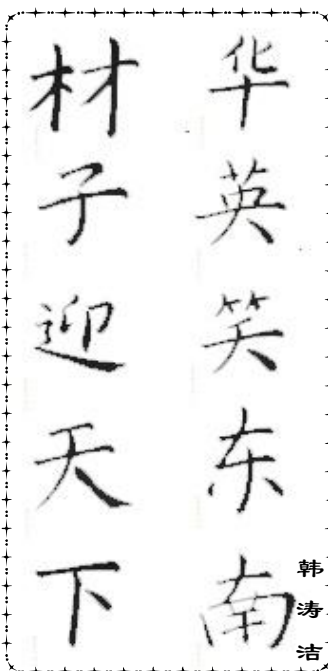 华英笑东南
材子迎天下
韩涛洁